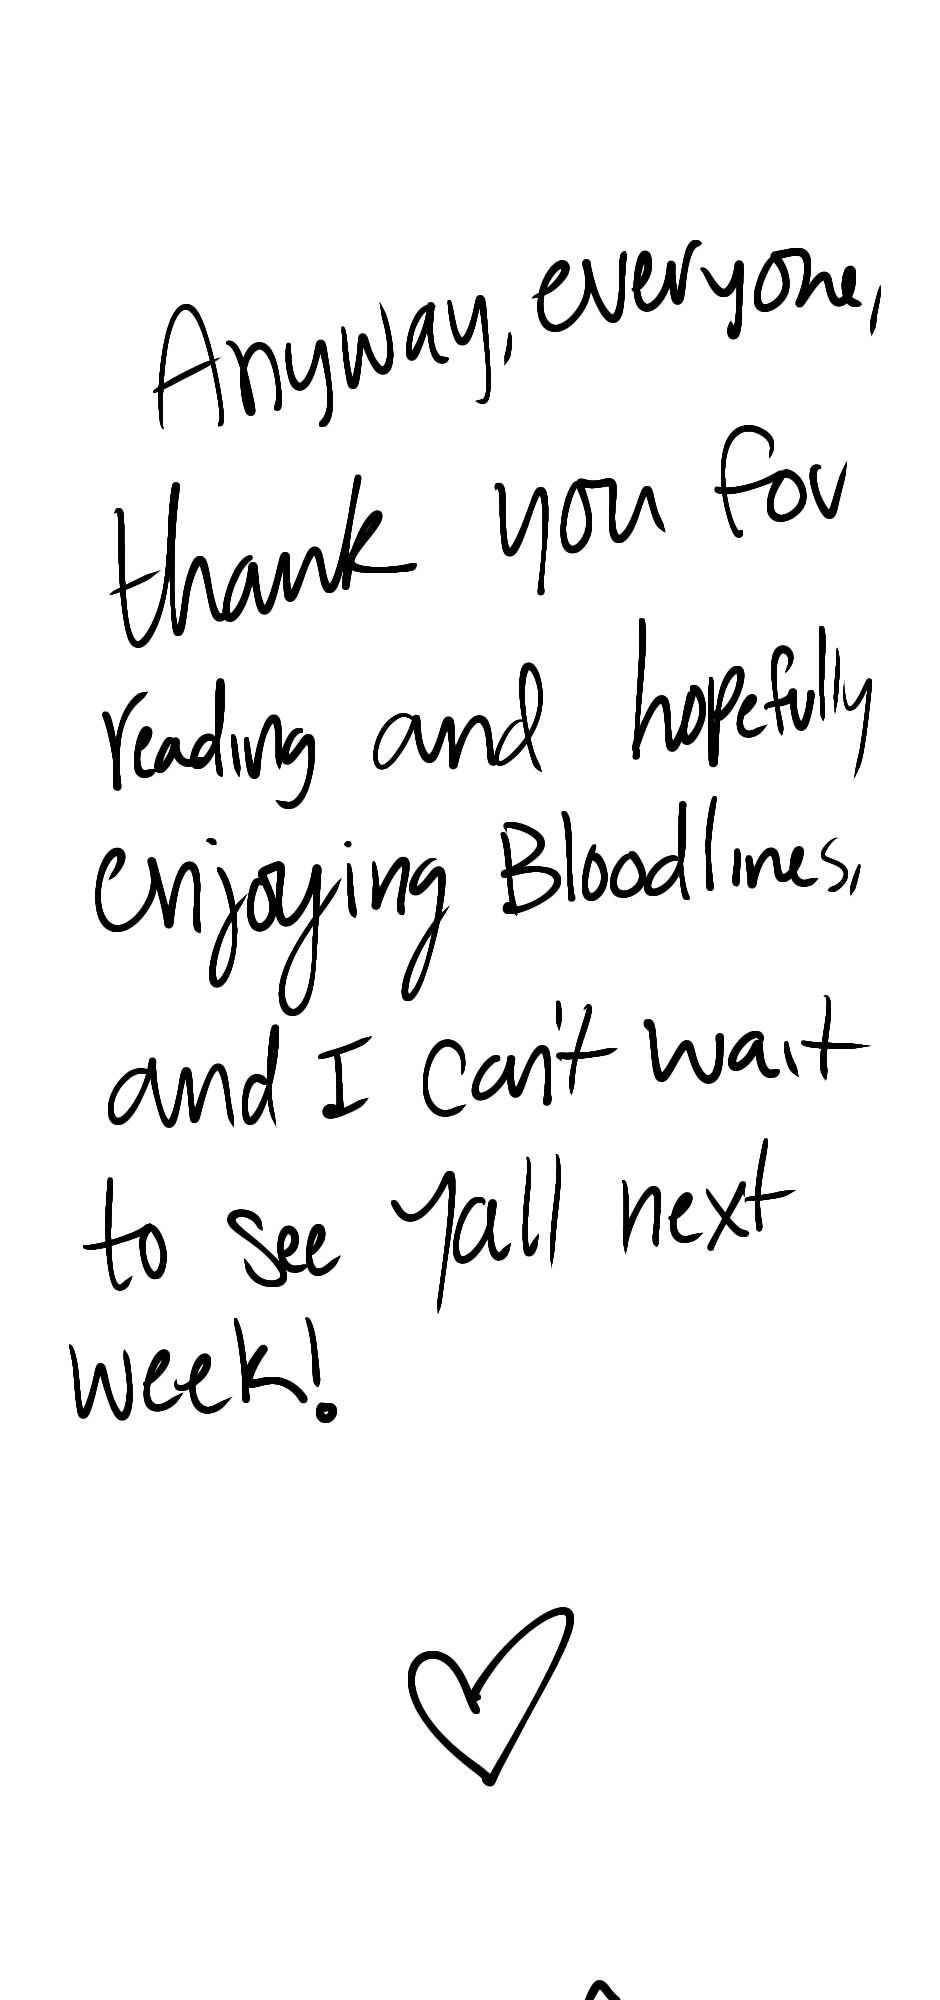 Anyway, everyone,
thank you for
reading and hopefully
enjoying Bloodlines,
and I can't wait
to see yall next
week!